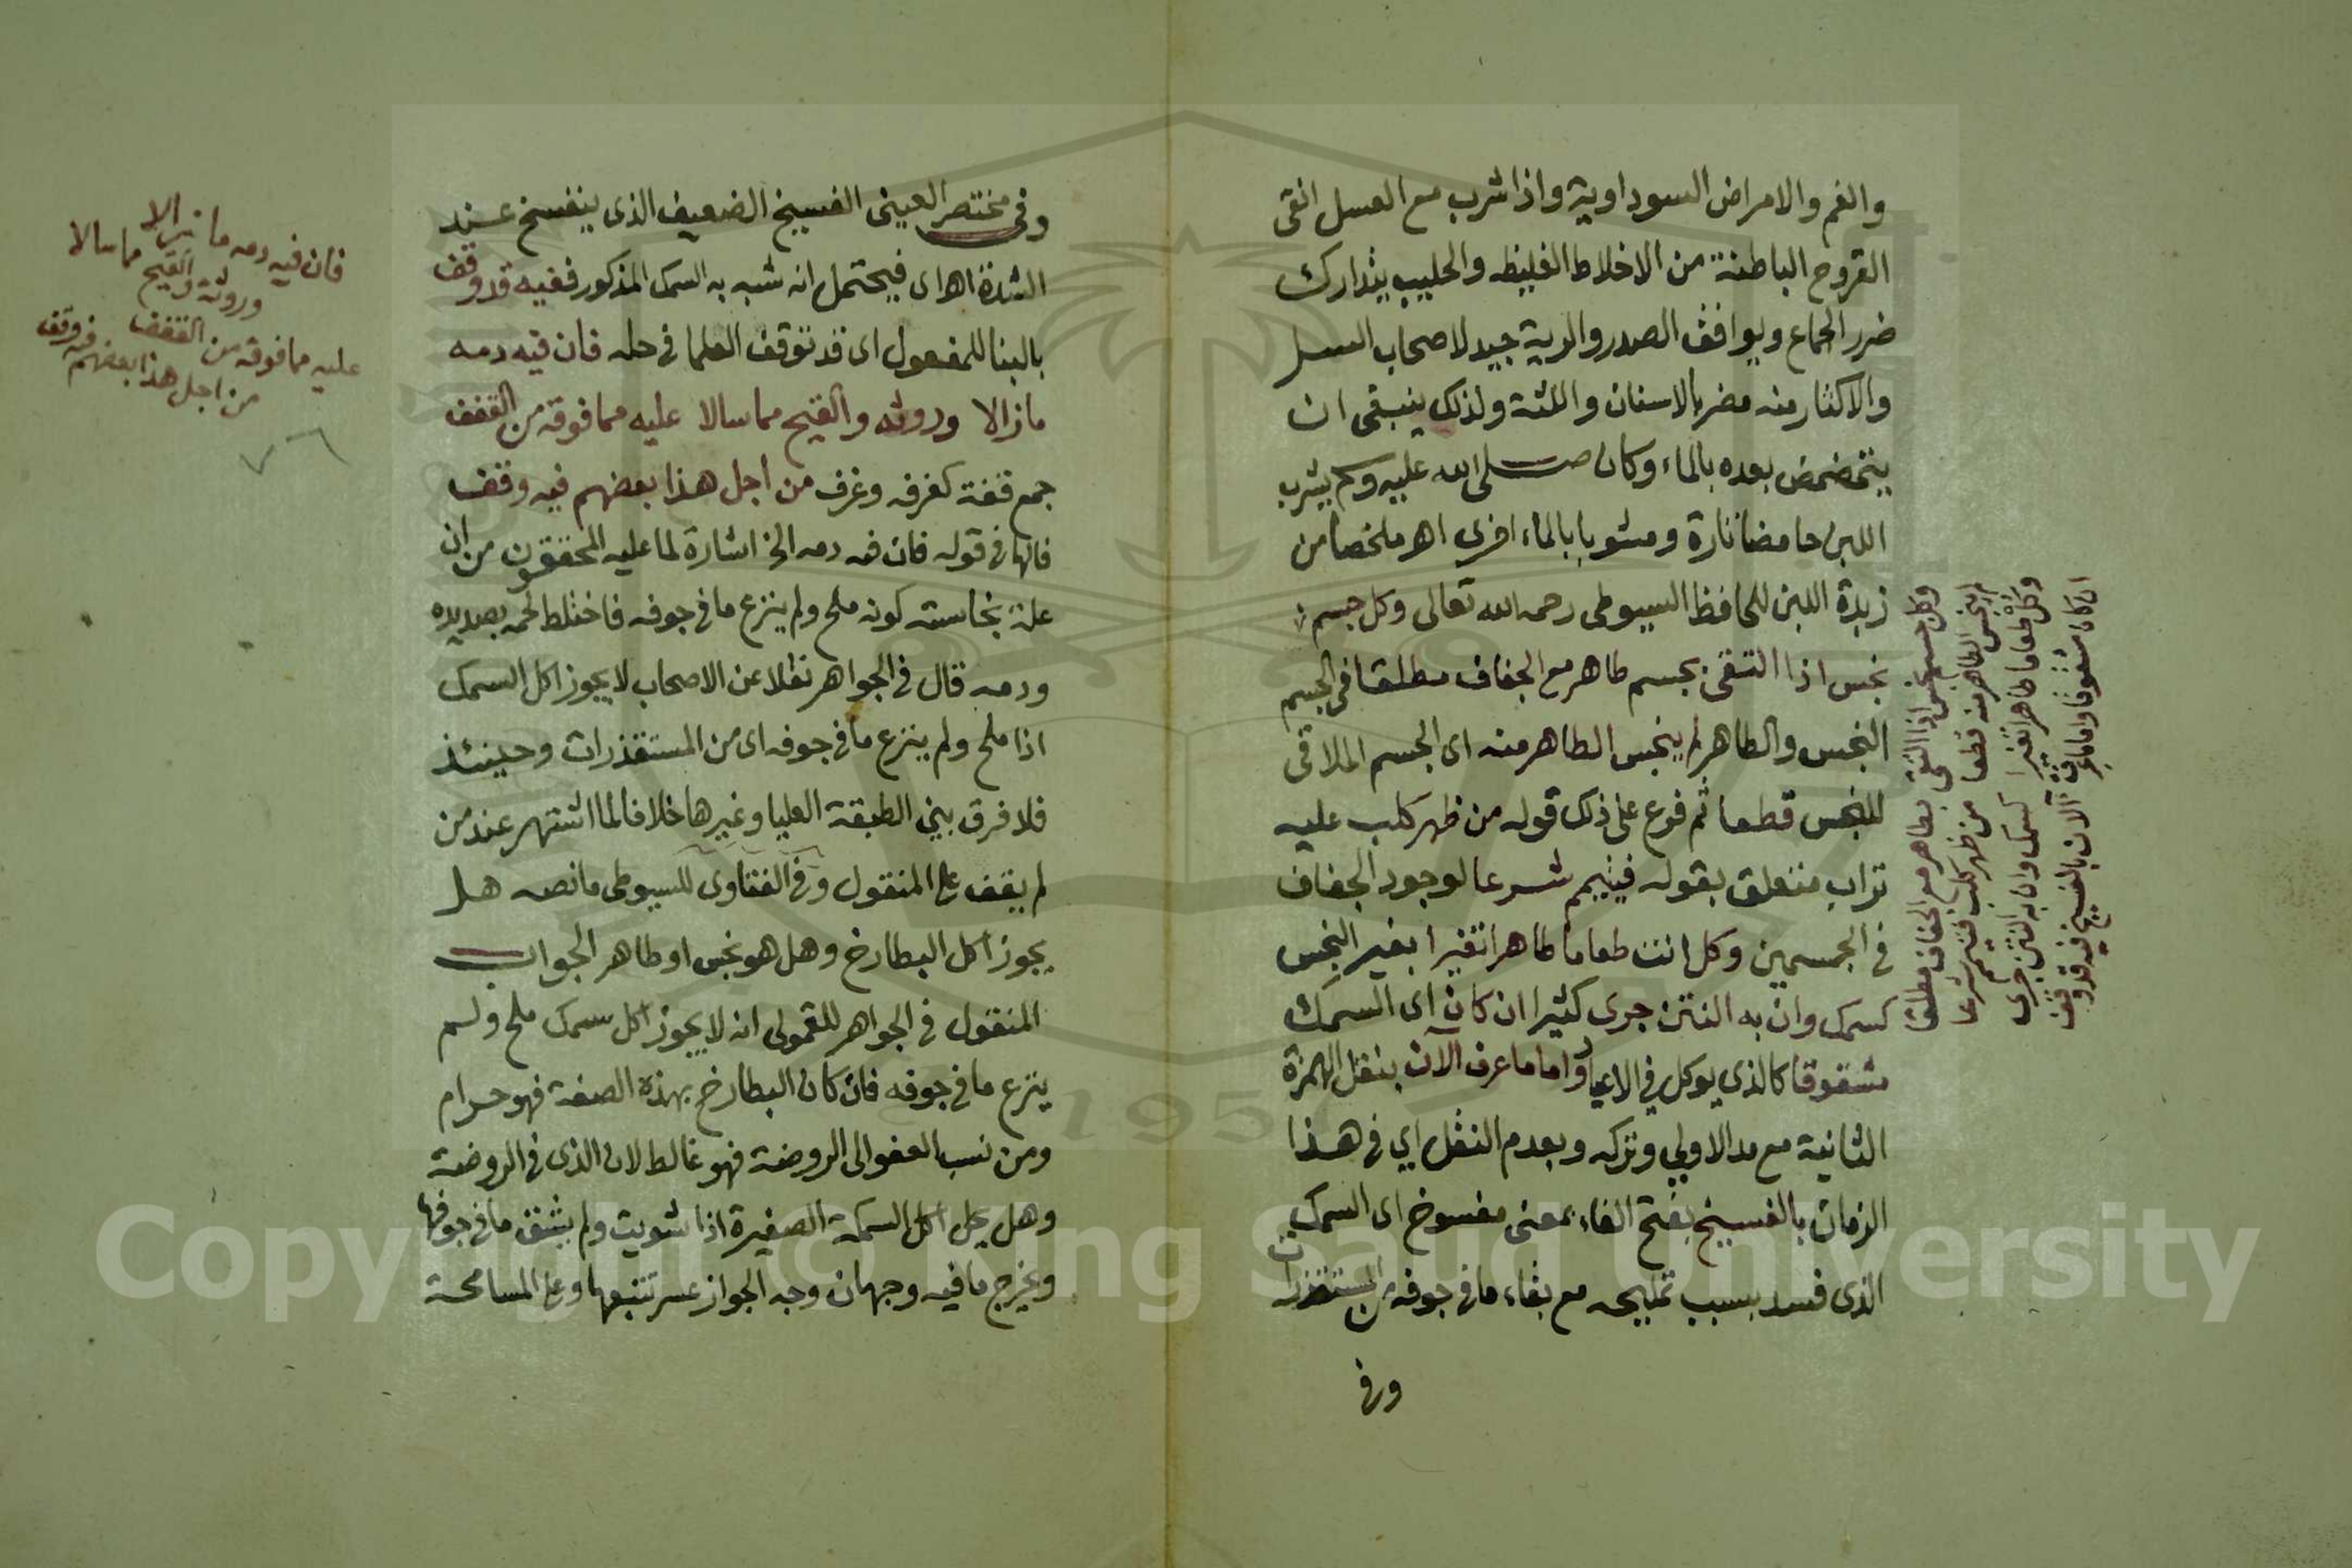 والغم والامراض السوداوية واذا شرب مع العسل انقى
القروح الباطنة من الاخلاط الغليظه والحليب يتدارك
ضرر الجماع ويوافق الصدر والرية جيد لاصحاب السسل
والاكثار منه مضر بالاسنان واللثة ولذلك ينبغى ان
يتمضمض بعده بالماء وكان صلى الله عليه وسلم يشرب
اللبن حامضا تارة ومشوبا بالماء اخرى اهـ ملخصا من
زبدة اللبن للحافظ السيوطى رحمه الله تعالى وكل جسم
نجس اذا التقى بجسم طاهر مع الجفاف مطلقا فى الجسم
النجس والطاهر لم ينجس الطاهر منه اى الجسم الملاقى
للنجس قطعا ثم فرع على ذلك قوله من ظهر كلب عليه
تراب متعلق بقوله فيتيمم شرعا لوجود الجفاف
فى الجسمين وكل انت طعاما طاهرا تغيرا بغير النجس
كسمك وان به النتن جرى كثيرا ان كان اى السمك
مشقوقا كالذى يوكل فى الاعياد واما ما عرف الآن بنقل الهمزة
الثانية مع مد الاولى وتركه وبعدم النقل اي فى هذا
الزمان بالفسيخ بفتح الفاء بمعنى مفسوخ اى السمك
الذى فسد بسبب تمليحه مع بقاء ما فى جوفه من المستقذرات
وفى
وكل جسم نجس اذا التقى بطاهر مع الجفاف مطلقا
لم ينجس الطاهر منه قطعا من ظهر كلب فتيمم شرعا
وكل طعاما طاهرا تغيرا كسمك وان به النتن جرى
ان كان مشقوقا واما ما عرف الآن بالفسيخ فيه قد وقف
وفى مختصر العينى الفسيخ الضعيف الذى ينفسخ عند
الشدة اهـ اى فيحتمل انه شبه به السمك المذكور ففيه قد وقف
بالبنا للمفعول اى قد توقف العلما فى حله فان فيه دمه
ما زالا وروثه والقيح مما سالا عليه مما فوقه من القفف
جمع قفة كغرفه وغرف من اجل هذا بعضهم فيه وقف
فانها فى قوله فان فيه دمه الخ اشارة لما عليه المحققون من ان
علة نجاسته كونه ملح ولم ينزع ما فى جوفه فاختلط لحمه بصديده
ودمه قال فى الجواهر نقلا عن الاصحاب لا يجوز اكل السمك
اذا ملح ولم ينزع ما فى جوفه اى من المستقذرات وحينئذ
فلا فرق بين الطبقة العليا وغيرها خلافا لما اشتهر عند من
لم يقف على المنقول وفى الفتاوى للسيوطى ما نصه هل
يجوز اكل البطارخ وهل هو نجس او طاهر الجواب
المنقول فى الجواهر للقمولى انه لا يجوز اكل سمك ملح ولم
ينزع ما فى جوفه فان كان البطارخ بهذه الصفة فهو حرام
ومن نسب العفو الى الروضة فهو غالط لان الذى فى الروضة
وهل يحل اكل السمكة الصغيرة اذا شويت ولم يشق ما فى جوفها
ويخرج ما فيه وجهان وجه الجواز عسر تتبعها وعلى المسامحة
فان فيه دمه ما زالا
وروثه والقيح مما سالا
عليه مما فوقه من القفف
من اجل هذا بعضهم فيه وقف